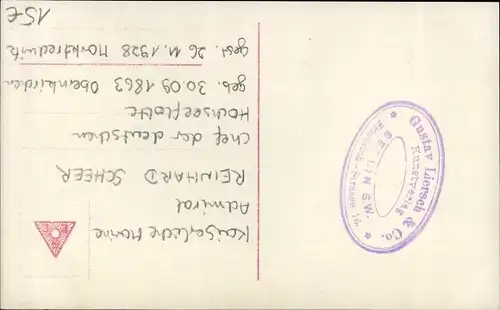 Kaiserliche Marine
Admiral
REINHARD SCHEER
Chef der deutschen
Hochseeflotte
geb. 30.09.1863 Obernkirchen
gest. 26.11.1928 Marktredwitz
15€
Gustav Liersch & Co.
Kunstverlag
BERLIN SW.
Friedrich-Strasse 16